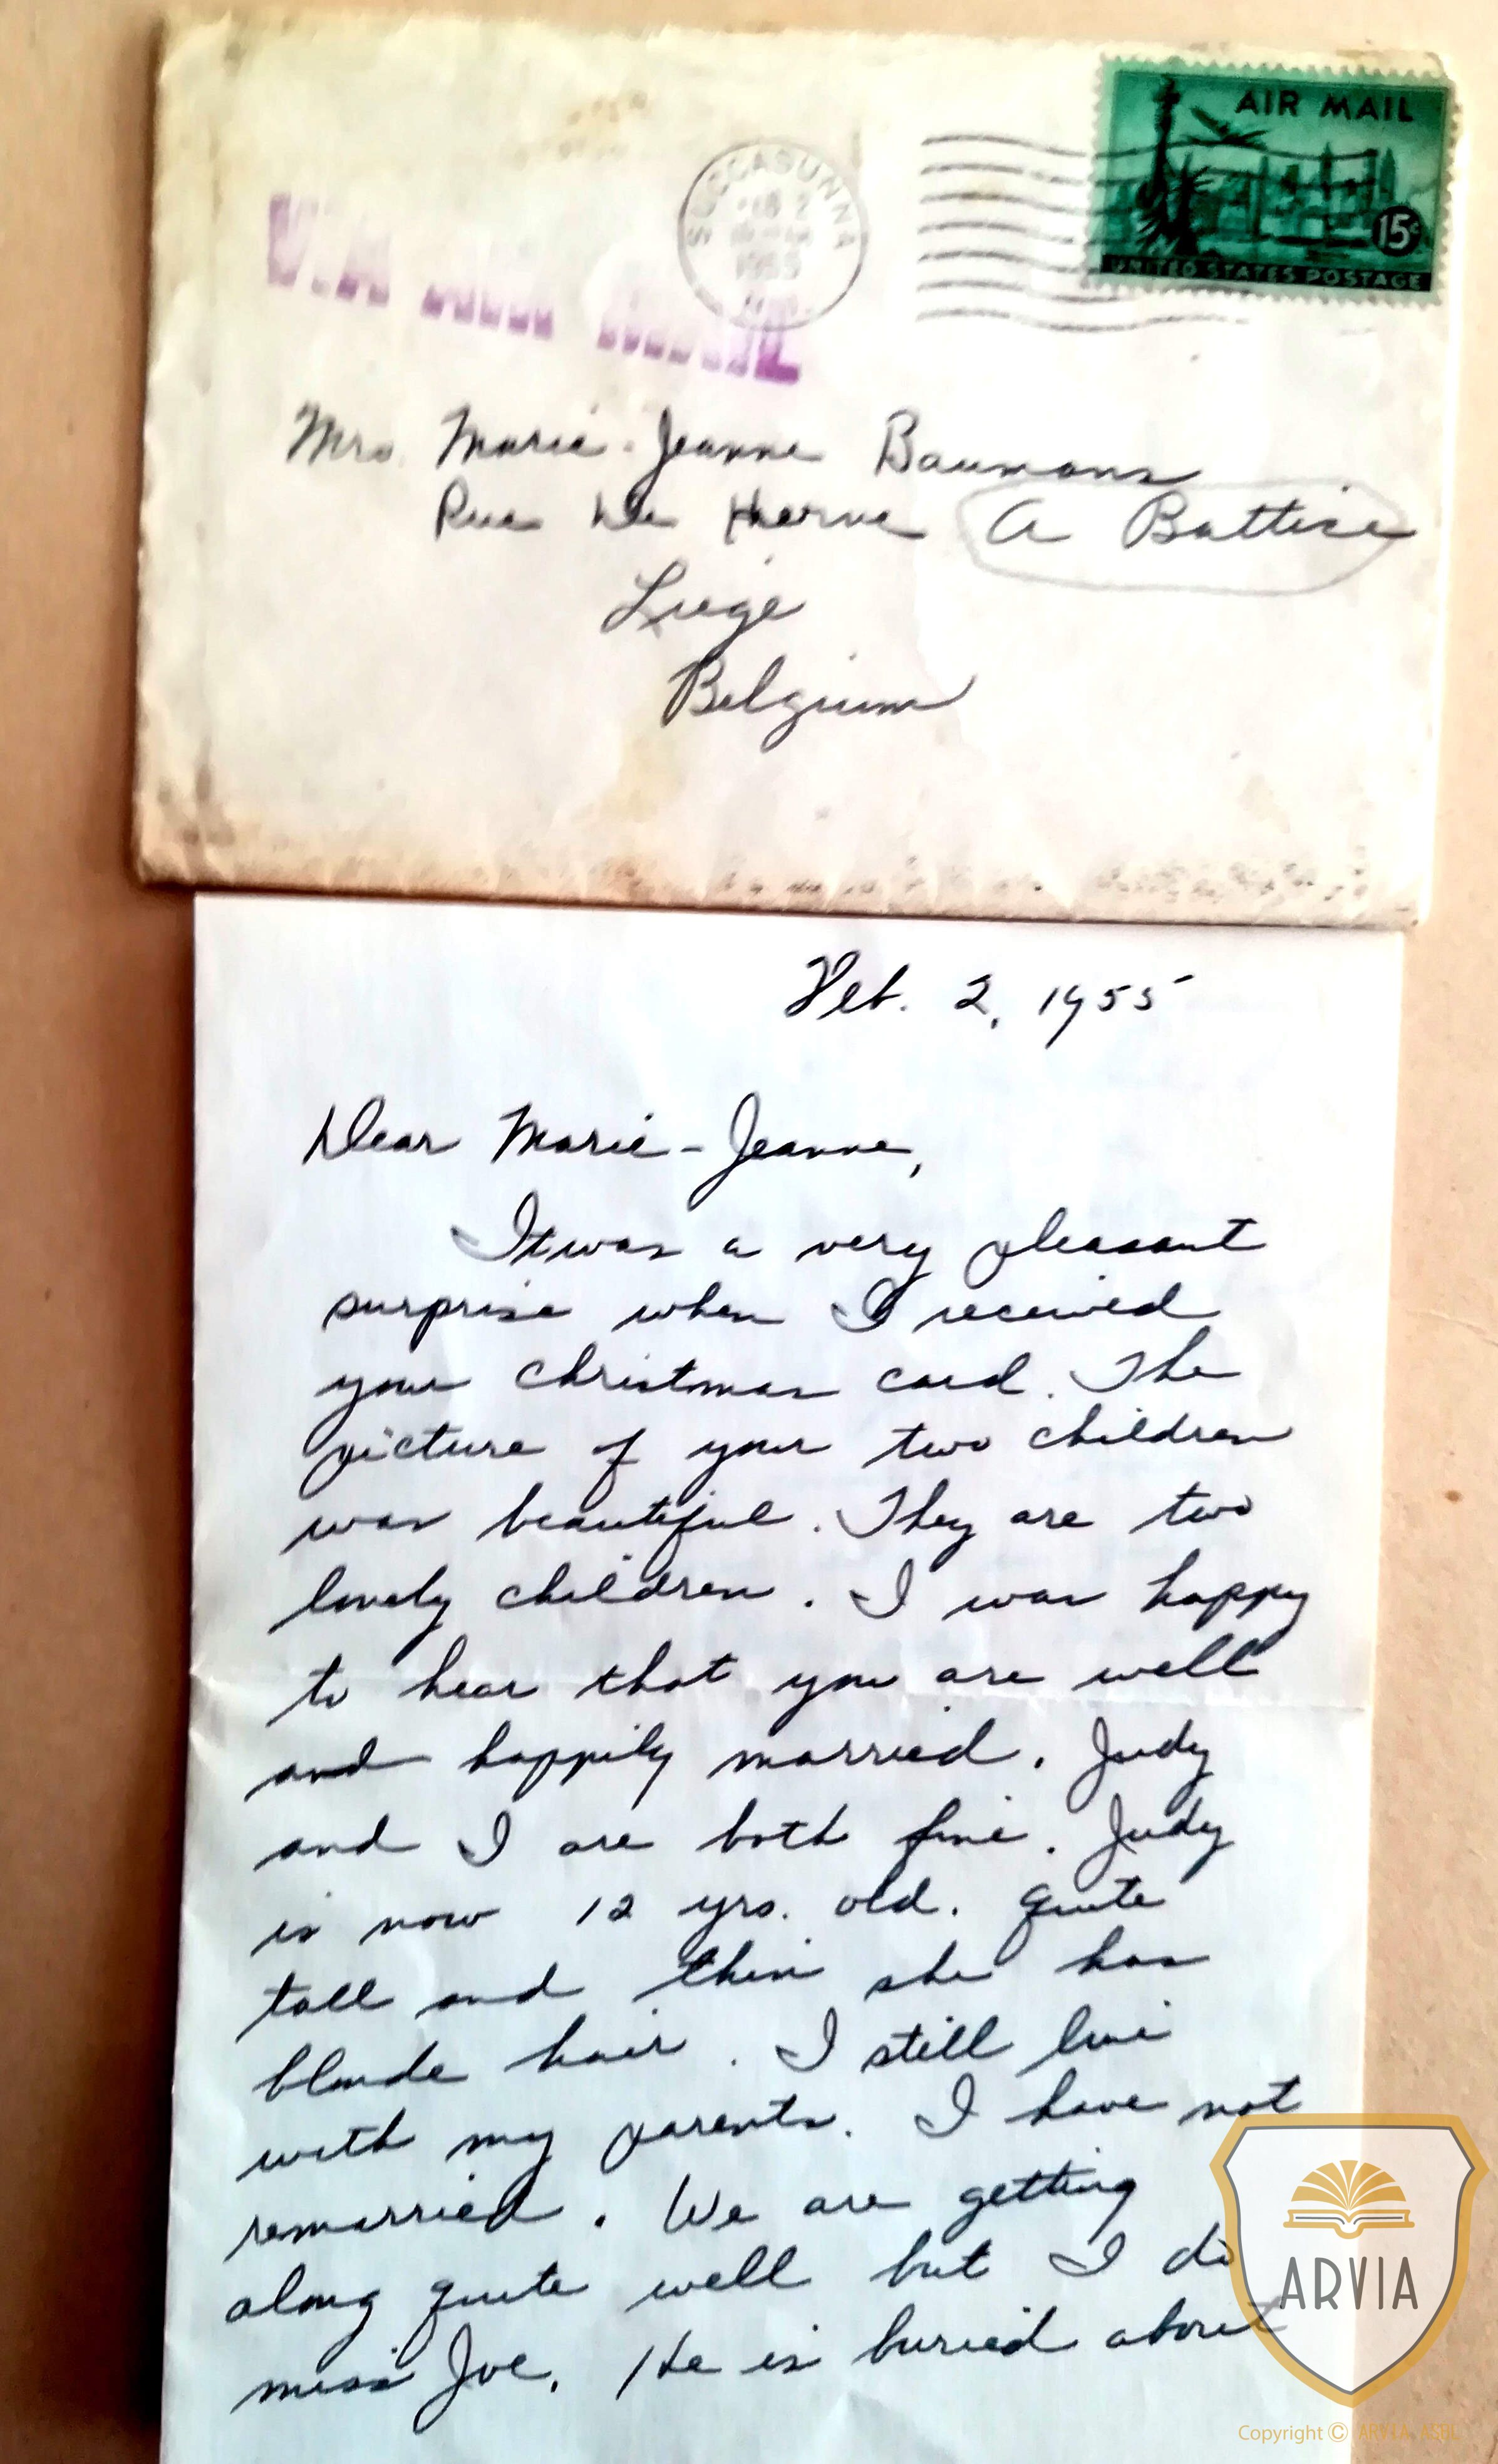 AIR MAIL
15¢
UNITED STATES POSTAGE
SUCCASUNNA
1955
VIA AIR MAIL
Mrs. Marie-Jeanne Baumans
Rue De Herve A Battice
Liege
Belgium
Feb. 2, 1955
Dear Marie-Jeanne,
It was a very pleasant
surprise when I received
your christmas card. The
picture of your two children
was beautiful. They are two
lovely children. I was happy
to hear that you are well
and happily married. Judy
and I are both fine. Judy
is now 12 yrs. old. Quite
tall and thin she has
blonde hair. I still live
with my parents. I have not
remarried. We are getting
along quite well but I do
miss Joe. He is buried about
ARVIA
Copyright © ARVIA ASBL